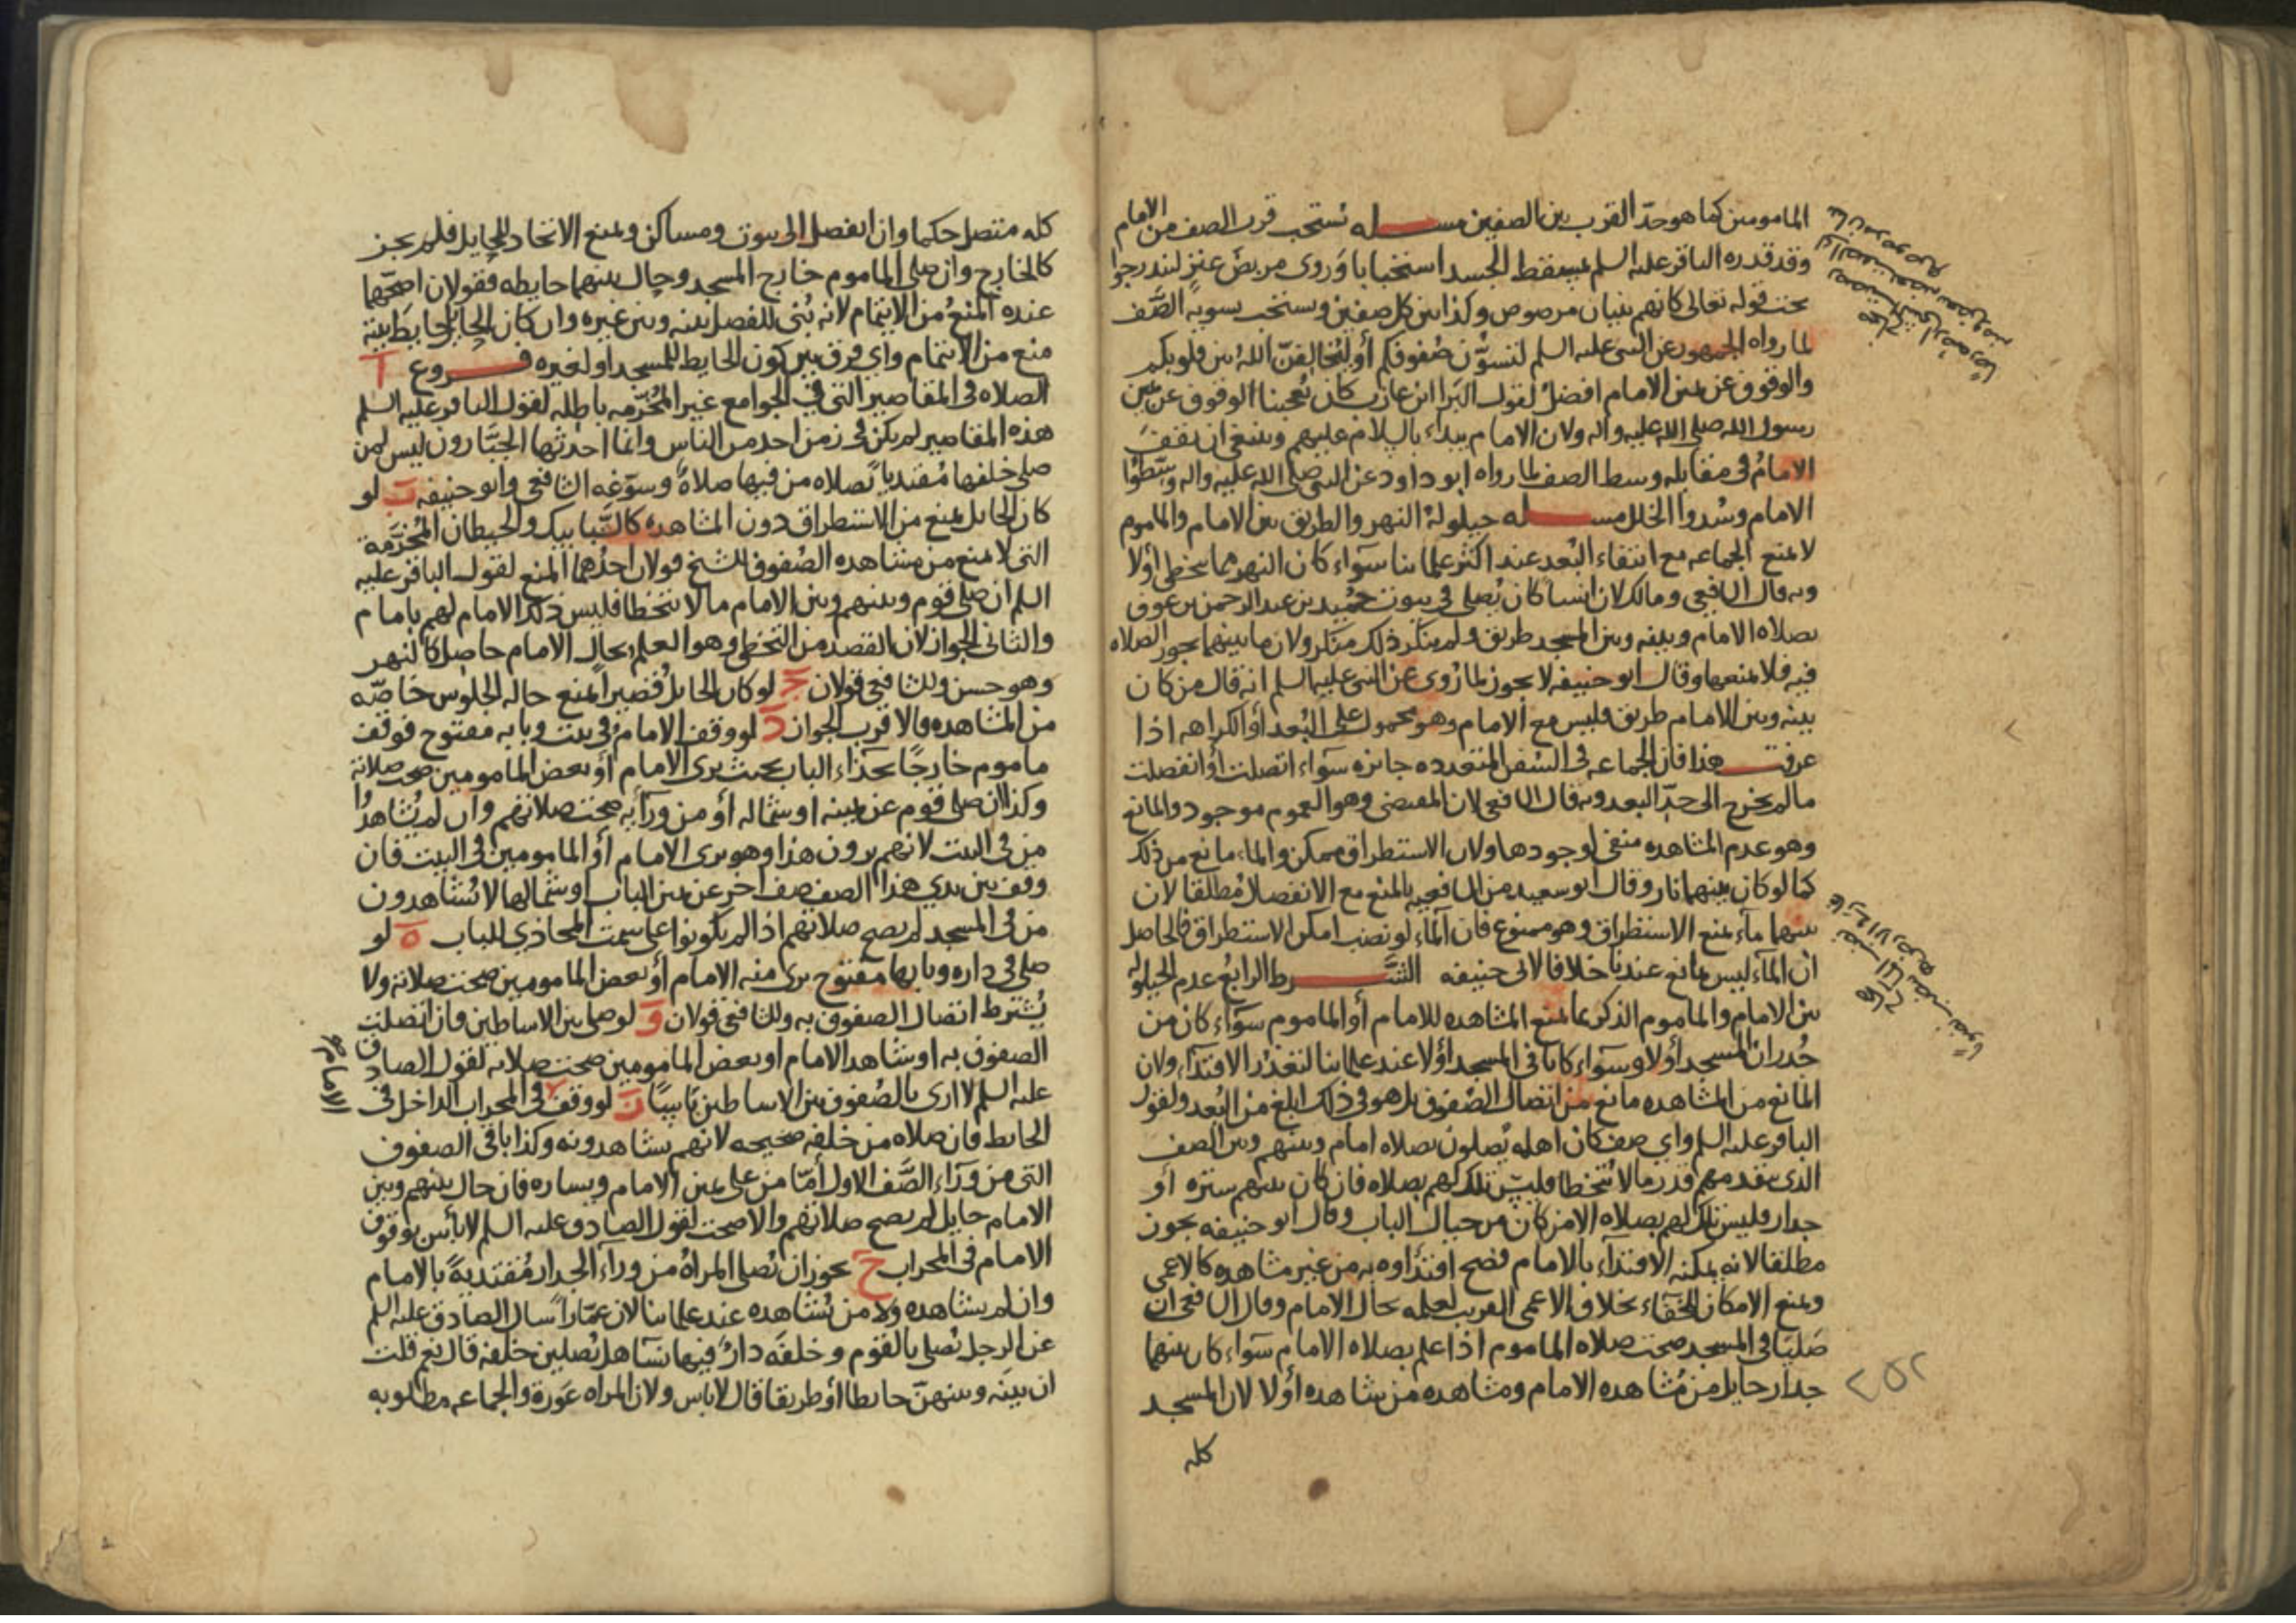 المامومين كما هو حدّ القرب بين الصفين مسله يستحب قرب الصف من الامام
وقد قدره الباقر عليه السلم بمسقط الجسد استحبابا وَروى مربض عنز ليندرجوا
تحت قوله تعالى كانهم بنيان مرصوص وكذا بين كل صفين ويستحب تسوية الصَّف
لما رواه الجمهور عن النبى عليه السلم لتسوُّن صُفوفكم أو ليُخالفنّ اللهُ بين قلوبكم
والوقوف عن يمين الامام افضل لقول البَرا ابن عازب كان يُعجبنا الوقوف عن يمين
رسول الله صلى الله عليه واله ولان الامام يبداء بالسلام عليهم وينبغى ان يقف
الامامُ فى مقابله وسط الصف لما رواه ابو داود عن النبى صلى الله عليه واله وسِّطوُا
الامام وسُدوا الخلل مسله حيلولة النهر والطريق بين الامام والماموم
لا يمنع الجماعه مع انتفاء البُعد عند اكثر علمائنا سوَاء كان النهر مما يتخطى أولا
وبه قال الشافعى ومالك لان انسا كان يُصلى فى بيوت حُمَيد بن عبد الرحمن بن عوف
بصلاه الامام وبينه وبين المسجد طريق ولم ينكر ذلك منكر ولان ما بينهما يجوز الصلاه
فيه فلا يمنعها وقال ابو حنيفه لا يجوز لما رُوى عن النبى عليه السلم انه قال من كان
بينه وبين الامام طريق فليس مع الامام وهو محمول على البُعد أو الكراهه اذا
عرفت هذا فان الجماعه فى السُفن المتعدده جائزه سوَاء اتصلت أو انفصلت
ما لم يخرج الى حدّ البعد وبه قال الشافعى لان المقتضى وهو العموم موجود والمانع
وهو عدم المشاهده منفى لوجودها ولان الاستطراق ممكن والماء مانع من ذلك
كما لو كان بينهما نار وقال ابو سعيد من الشافعيه بالمنع مع الانفصال مُطلقا لان
بينهما مآء يمنع الاستطراق وهو ممنوع فان المآء لو نضب امكن الاستطراق فالحاصل
ان المآء ليس بمانع عندنا خلافا لابى حنيفه الشَّرط الرابعُ عدم الحيلوله
بين الامام والماموم الذكر بما يمنع المشاهده للامام أو الماموم سوَاء كان من
جُدران المسجد أولا وسوَاء كانا فى المسجد أولا عند علمائنا لتعذر الاقتدآء ولان
المانع من المشاهده مانع من اتصال الصفوف بل هو فى ذلك ابلغ من البُعد ولقول
الباقر عليه السلم واي صف كان اهله يُصلون بصلاه امام وبينهم وبين الصف
الذى يتقدمهم قدر ما لا يُتخطا فليس تلك لهم بصلاه فان كان بينهم ستره أو
جدار فليس تلك لهم بصلاه الا من كان من حيال الباب وقال ابو حنيفه يجوز
مطلقا لانه يمكنه الاقتدآء بالامام فصح اقتدآوه به من غير مشاهده كالاعمى
ويمنع الامكان للخَفآء بخلاف الاعمى القريب لعلمه بحال الامام وقال الشافعى ان
صَليَا فى المسجد صحت صلاه الماموم اذا علم بصلاه الامام سوَاء كان بينهما
جدار حايل من مُشاهده الامام ومشاهده من يشاهده أولا لان المسجد
كله
٢٥٢
كله متصل حكما وان انفصل الى بيوت ومساكن ويمنع الاتحاد للحايل فلم يجز
كالخارج وان صلى الماموم خارج المسجد وحال بينهما حايطه فقولان اصحّهما
عنده المنعُ من الايتمام لانه بُنى للفصل بينه وبين غيره وان كان الحايل حايط بيته
منع من الايتمام واي فرق بين كون الحايط للمسجد او لغيره فروع آ
الصلاه فى المقاصير التى فى الجوامع غير المُخرّمه باطله لقول الباقر عليه السلم
هذه المقاصير لم يكن فى زمن احد من الناس وانما احدثها الجبَّارون ليس لمن
صلى خلفها مُقتديا بصلاه من فيها صلاةٌ وسوّغه الشافعى وابو حنيفه ب لو
كان الحايل يمنع من الاستطراق دون المشاهده كالشَّبابيك والحيطان المُخرَّمة
التى لا تمنع من مشاهده الصُفوف للشيخ قولان احدُهما المنع لقول الباقر عليه
السلم ان صلى قوم وبينهم وبين الامام ما لا يتخطا فليس ذلك الامام لهم بامام
والثانى الجواز لان القصد من التخطى وهو العلم بحال الامام حاصل كالنهر
وهو حسن وللشافعى قولان ج لو كان الحايل قصيرا يمنع حاله الجلوس خاصّه
من المشاهده فالاقرب الجواز د لو وقف الامام فى بيت وبابه مفتوح فوقف
ماموم خارجًا بحذآء الباب بحيث يرى الامام أو بعض المامومين صحت صلاته
وكذا ان صلى قوم عن يمينه او شماله أو من ورآيه صحت صلاتهم وان لم يُشاهدُوا
من فى البيت لانهم يرون هذا وهو يرى الامام أو المامومين فى البيت فان
وقف بين يدي هذا الصف صف اخر عن يمين الباب او شمالها لا يُشاهدون
من فى المسجد لم يصح صلاتهم اذا لم يكونوا على سمت المحاذي للباب ه لو
صلى فى داره وبابها مفتوح يرى منه الامام أو بعض المامومين صحت صلاته ولا
يُشترط اتصال الصفوف به وللشافعى قولان و لو صلى بين الاساطين فان اتصلت
الصفوف به او شاهد الامام او بعض المامومين صحت صلاته لقول الصادق
عليه السلم لا ارى بالصُفوف بين الاساطين باسًا ز لو وقف فى المحراب الداخل فى
الامام
الحايط فان صلاه من خلفه صحيحه لانهم يشاهدونه وكذا باقى الصفوف
التى من ورآء الصَّف الاول أمّا من على يمين الامام ويساره فان حال بينهم وبين
الامام حايل لم يصح صلاتهم والا صحت لقول الصادق عليه السلم لا بأس بوقوف
الامام فى المحراب ح يجوز ان تُصلى المراة من ورآء الجدار مُقتديةً بالامام
وان لم يشاهده ولا من يُشاهده عند علمائنا لان عمّاراً سال الصادق عليه السلم
عن الرجل يُصلى بالقوم وخلفَه دارٌ فيها نسآء هل يُصلين خلفه قال نعم قلت
ان بينه وبينهنّ حايطا أو طريقا قال لا باس ولان المراه عَورة والجماعه مطلوبه